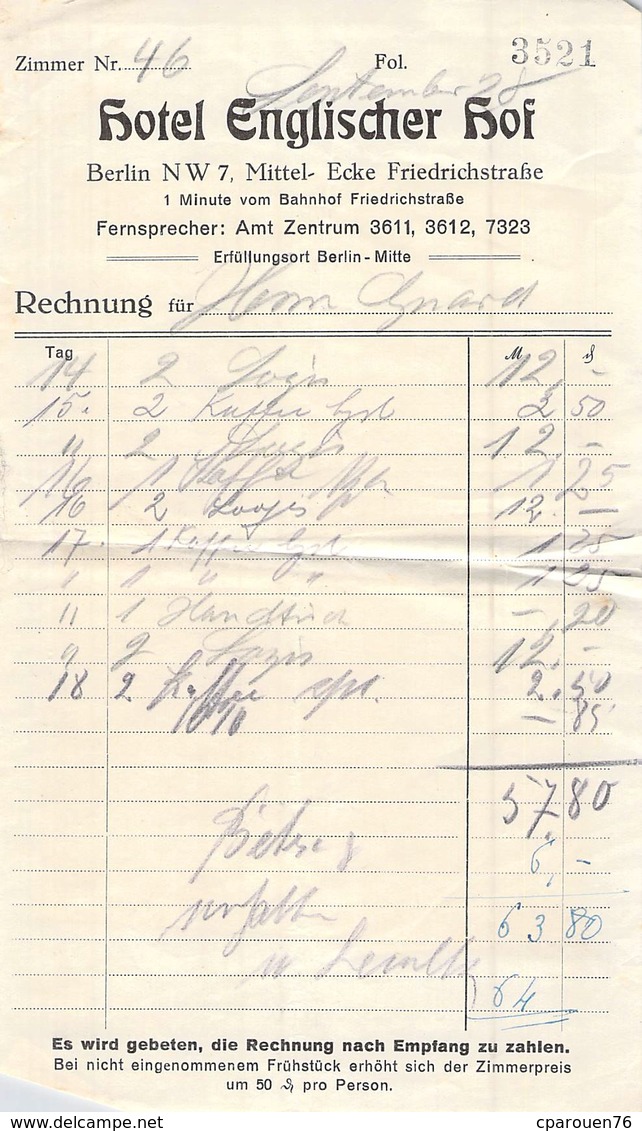 Zimmer Nr. 46 Fol. 3521
September 28
Hotel Englischer Hof
Berlin NW 7, Mittel- Ecke Friedrichstraße
1 Minute vom Bahnhof Friedrichstraße
Fernsprecher: Amt Zentrum 3611, 3612, 7323
Erfüllungsort Berlin-Mitte
Rechnung für Herrn Guard
Tag M ₰
14 2 Logis 12,-
15. 2 Kaffee 2 50
" 2 Logis 12,-
16 1 1 25
16 2 Logis 12.-
17. 1 Kaffee 1 25
" 1 " " 1 25
" 1 Handtuch -,20
" 2 Logis 12.-
18 2 Kaffee cplt. 2.50
10% - 85
57,80
6,-
erhalten
63 80
64
Es wird gebeten, die Rechnung nach Empfang zu zahlen.
Bei nicht eingenommenem Frühstück erhöht sich der Zimmerpreis
um 50 ₰ pro Person.
cparouen76